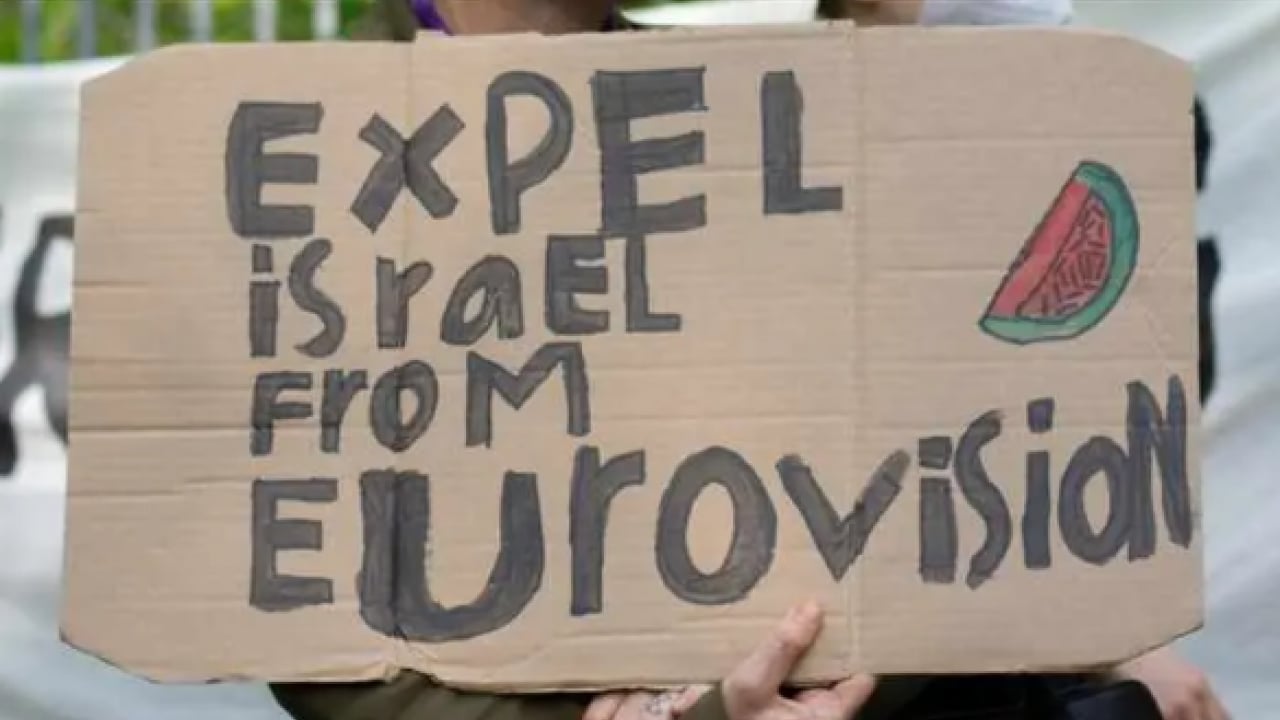 EXPEL
israEL
FroM
EurovisioN